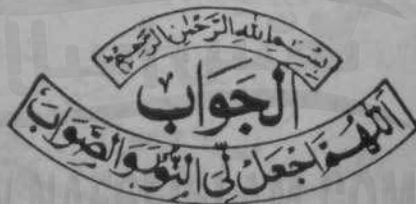 بِسْمِ اللهِ الرَّحْمٰنِ الرَّحِيْمِ
اَلجَوَاب
اَللّٰهُمَّ اجْعَلْ لِّى النُّوْرَ وَالصَّوَابَ